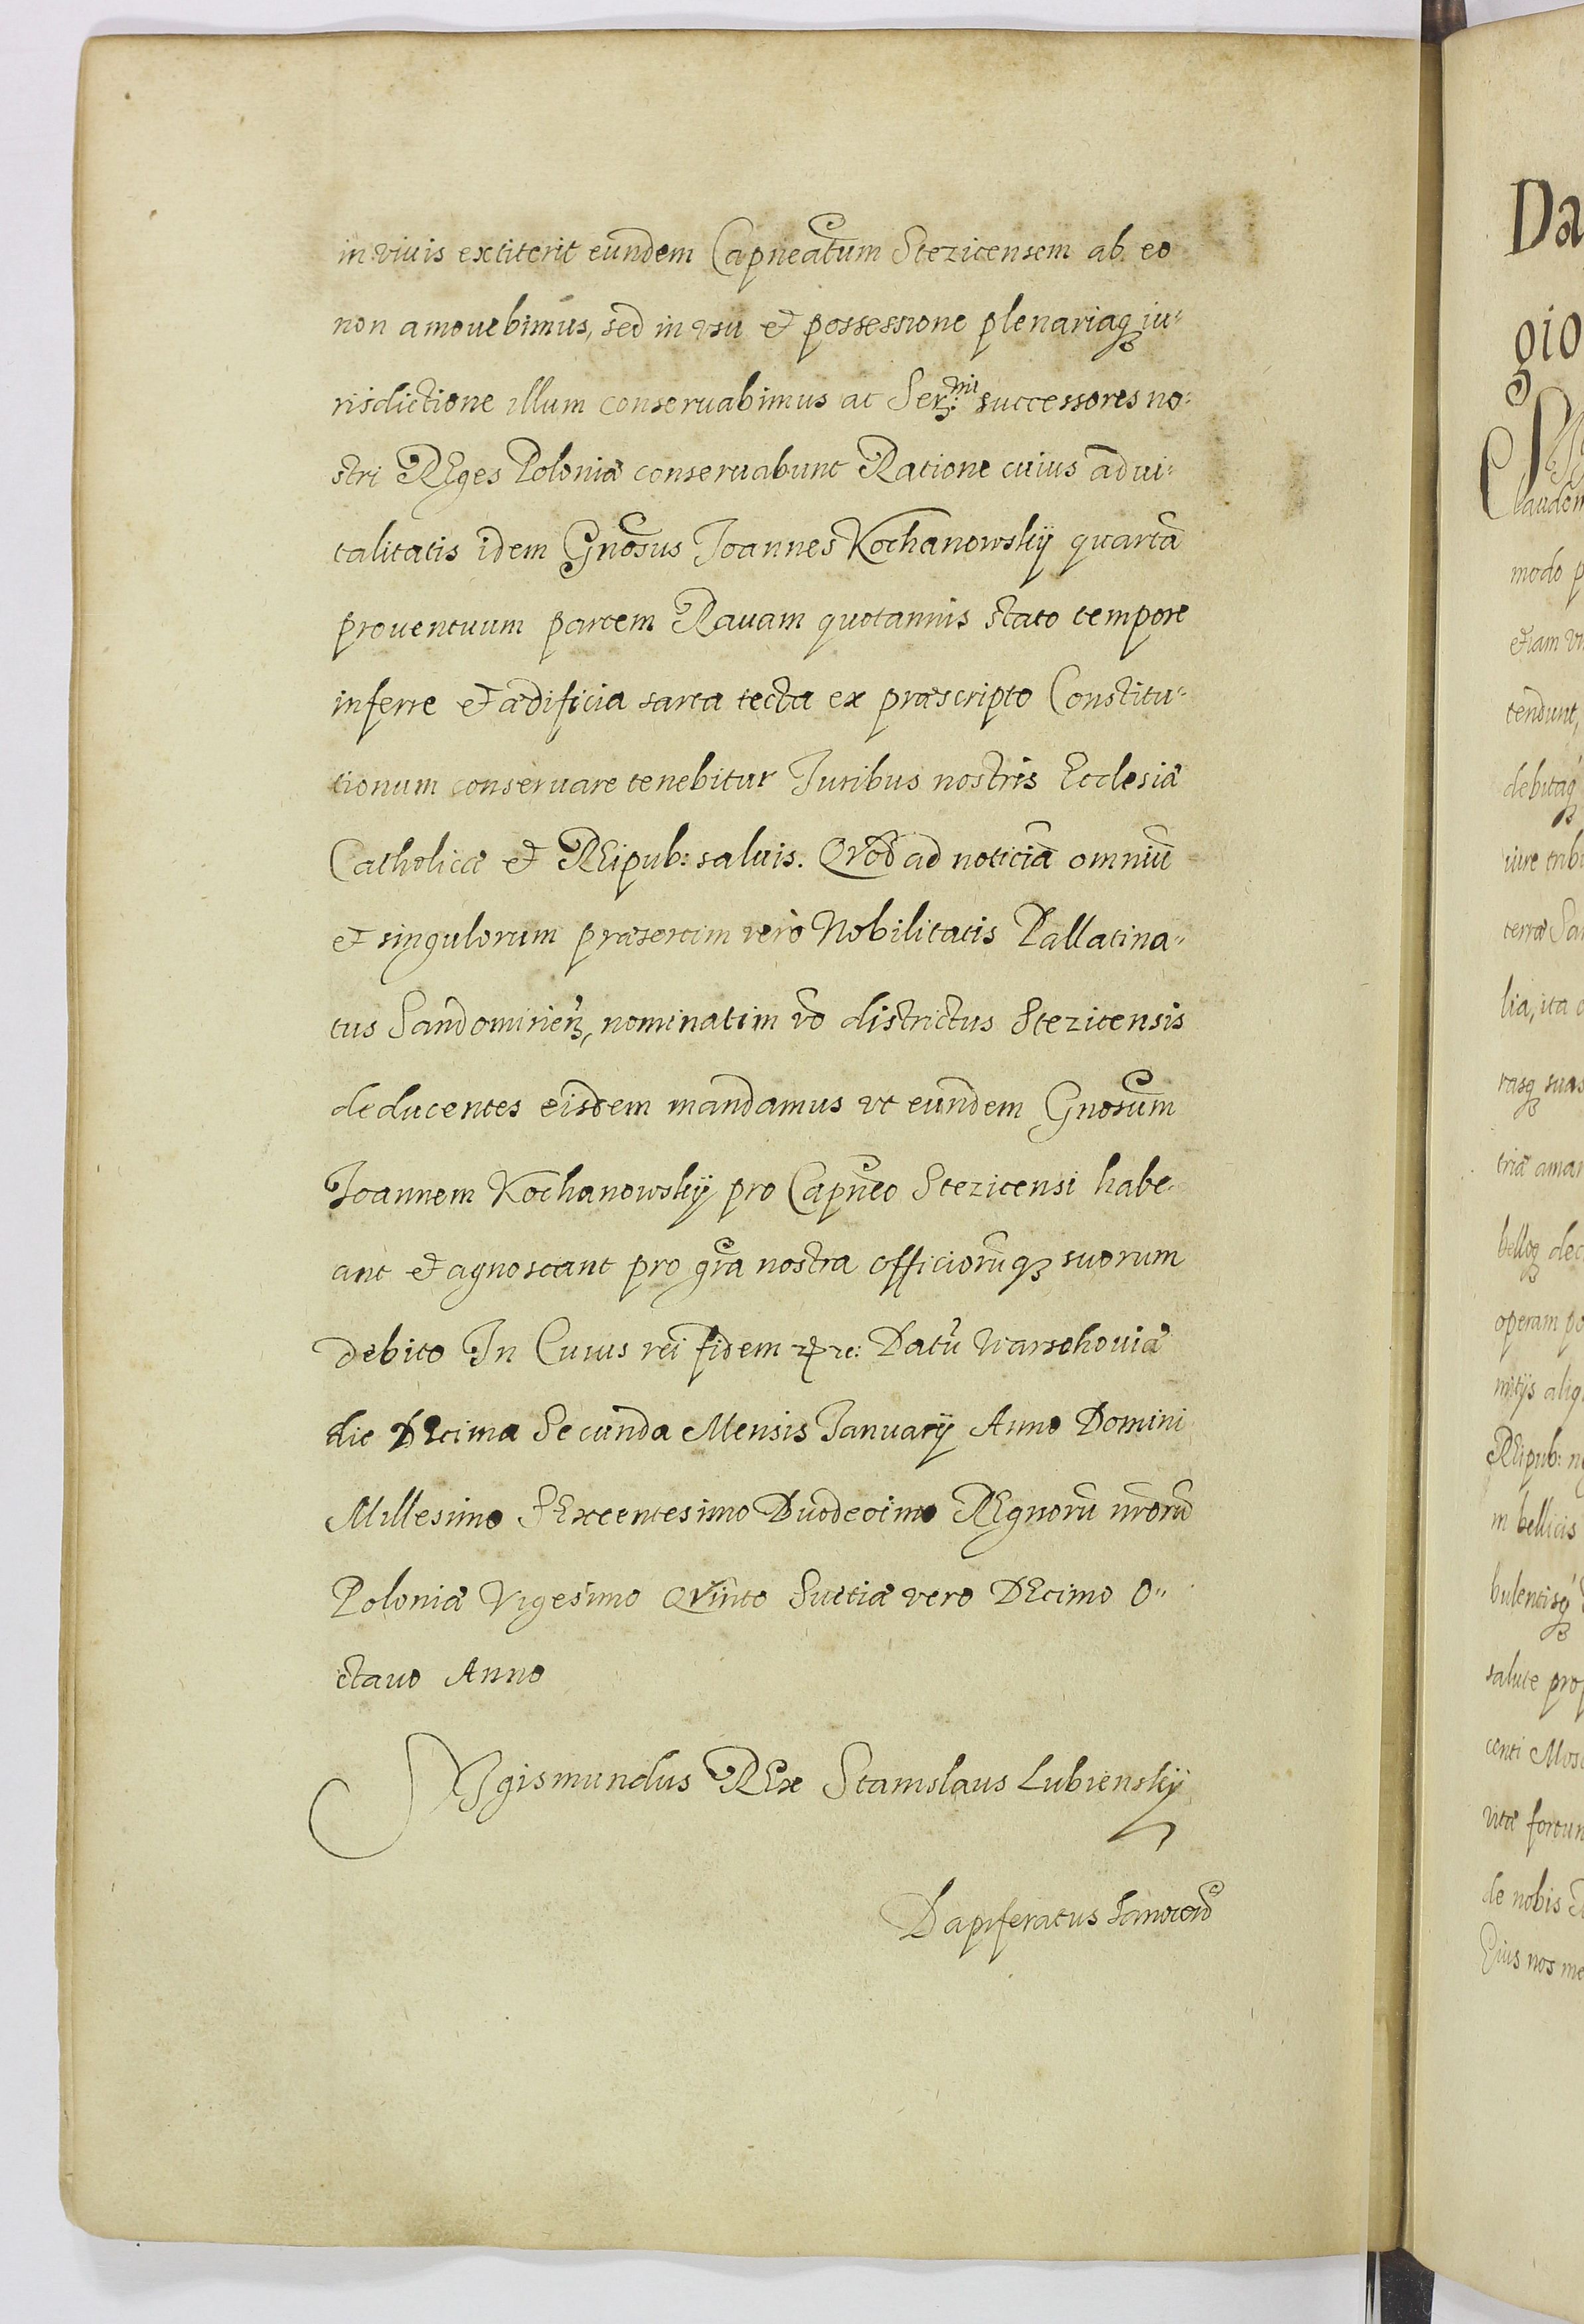 in viuis extiterit eundem Capneatum Stezicensem ab eo
non amouebimus, sed in vsu et possessione plenariaq iu-
risdictione illum conseruabimus ac Ser:mi successores no-
stri REges Poloniæ conseruabunt Ratione cuius advi-
talitatis idem Gnosus Joannes Kochanowskÿ quartã
prouentuum partem Rauam quotannis stato tempore
inferre et ædificia sarta tecta ex præscripto Constitu-
tionum conseruare tenebitur Juribus nostris Ecclesiæ
Catholicæ et REipub: saluis. QVod ad noticiã omniũ
et singulorum præsertim verò Nobilitatis Pallatina-
tus Sandomirieñ, nominatim vo districtus Stezicensis
deducentes eisdem mandamus vt eundem Gnosum
Joannem Kochanowskÿ pro Capneo Stezicensi habe-
ant et agnoscant pro gra nostra officiorũq suorum
debito In Cuius rei fidem etc: Datũ Warschouiæ
die DEcima Secunda Mensis Januarÿ Anno Domini
Millesimo SExcentesimo Duodecimo REgnorũ nrorũ
Poloniæ Vigesimo QVinto Suetiæ vero DEcimo o-
ctauo Anno
SIgismundus REx Stanislaus Lubienskÿ
Dapiferatus
Da
gio
laudem
modo p
etiam
tendunt,
debitaq
iure trib
terræ Sa
lia, ita
rasq suas
triæ aman
belloq dec
operam po
mitÿs aliq
REipub: n
in bellicis
bulentisq
salute prop
centi Mos
vitæ fortun
de nobis
Eius nos me